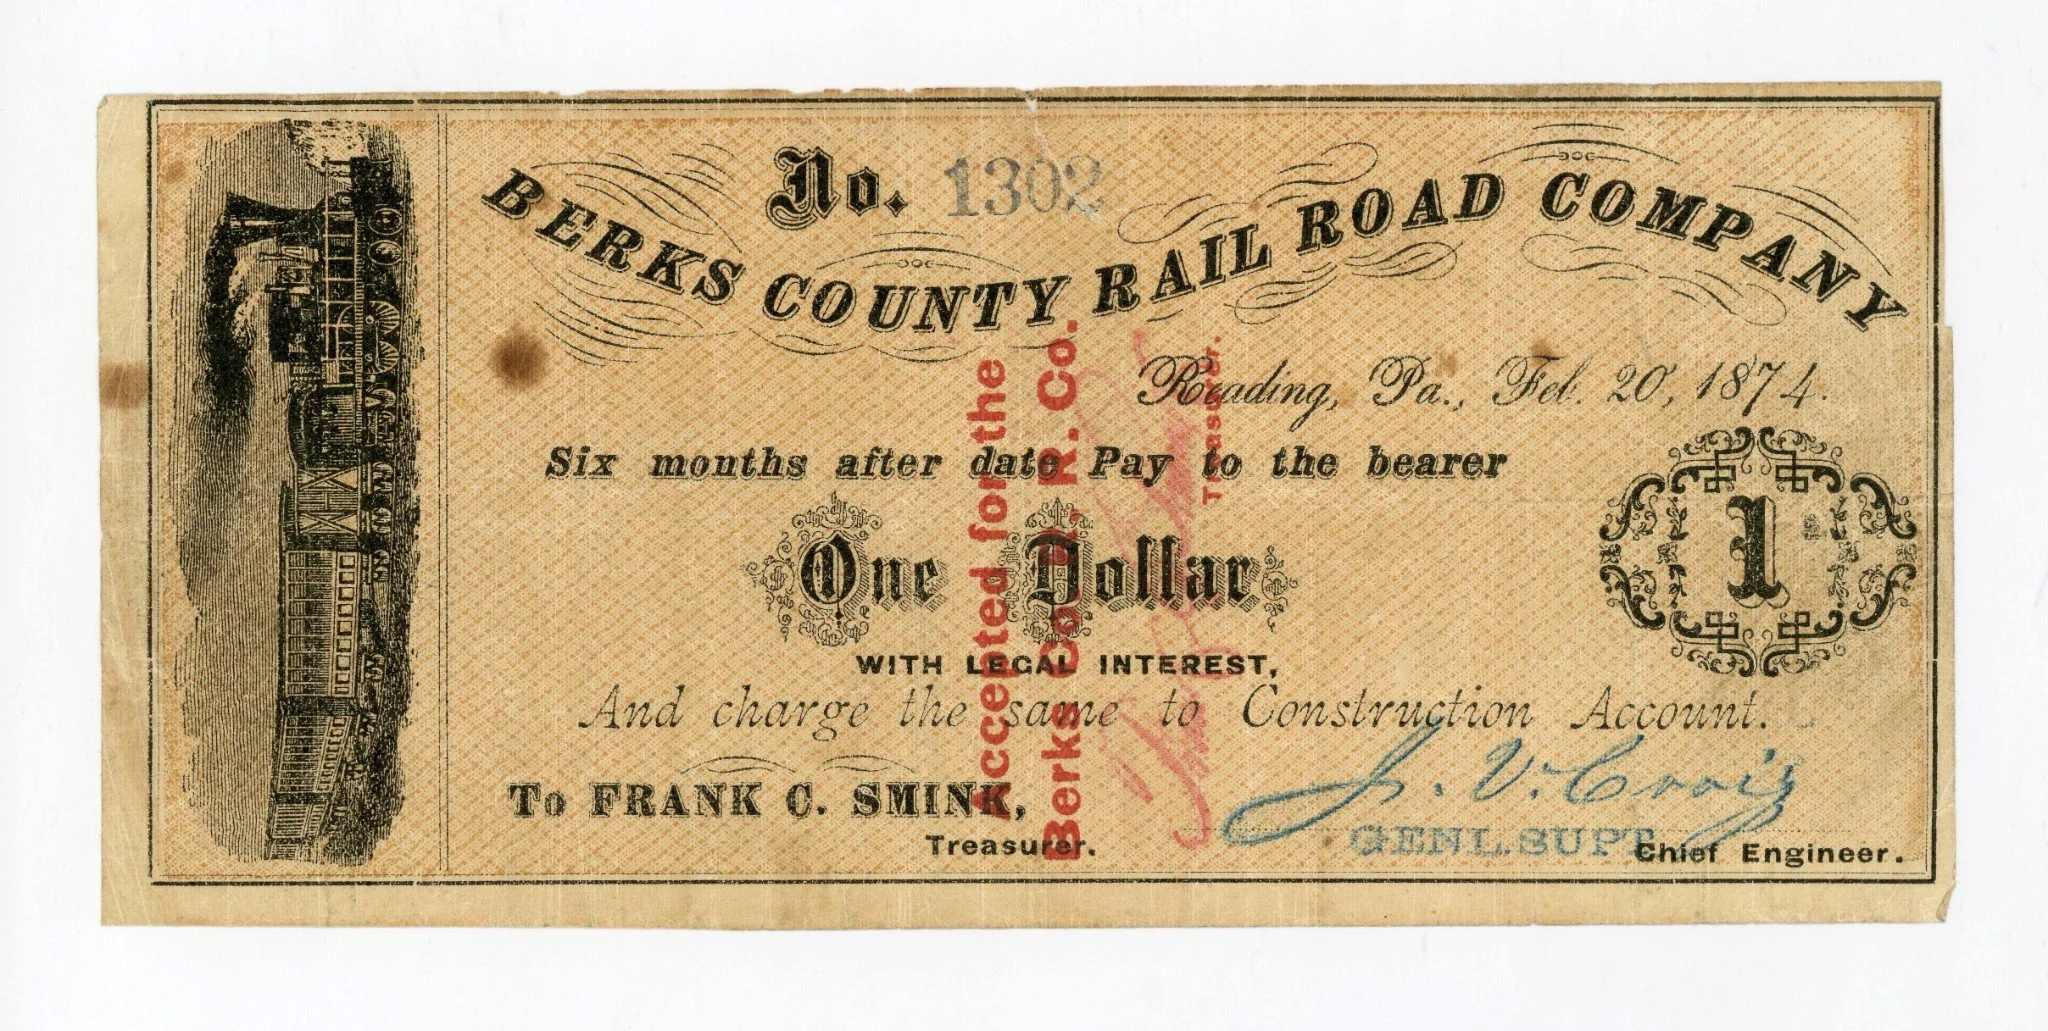 No. 1302
BERKS COUNTY RAIL ROAD COMPANY
Reading, Pa., Feb. 20, 1874.
Six months after date Pay to the bearer
One Dollar
1
WITH LEGAL INTEREST,
And charge the same to Construction Account.
To FRANK C. SMINK,
Treasurer.
J. V. Craig
GENL. SUPT.
Chief Engineer.
Accepted for the
Berks Co. R. R. Co.
Treasurer.